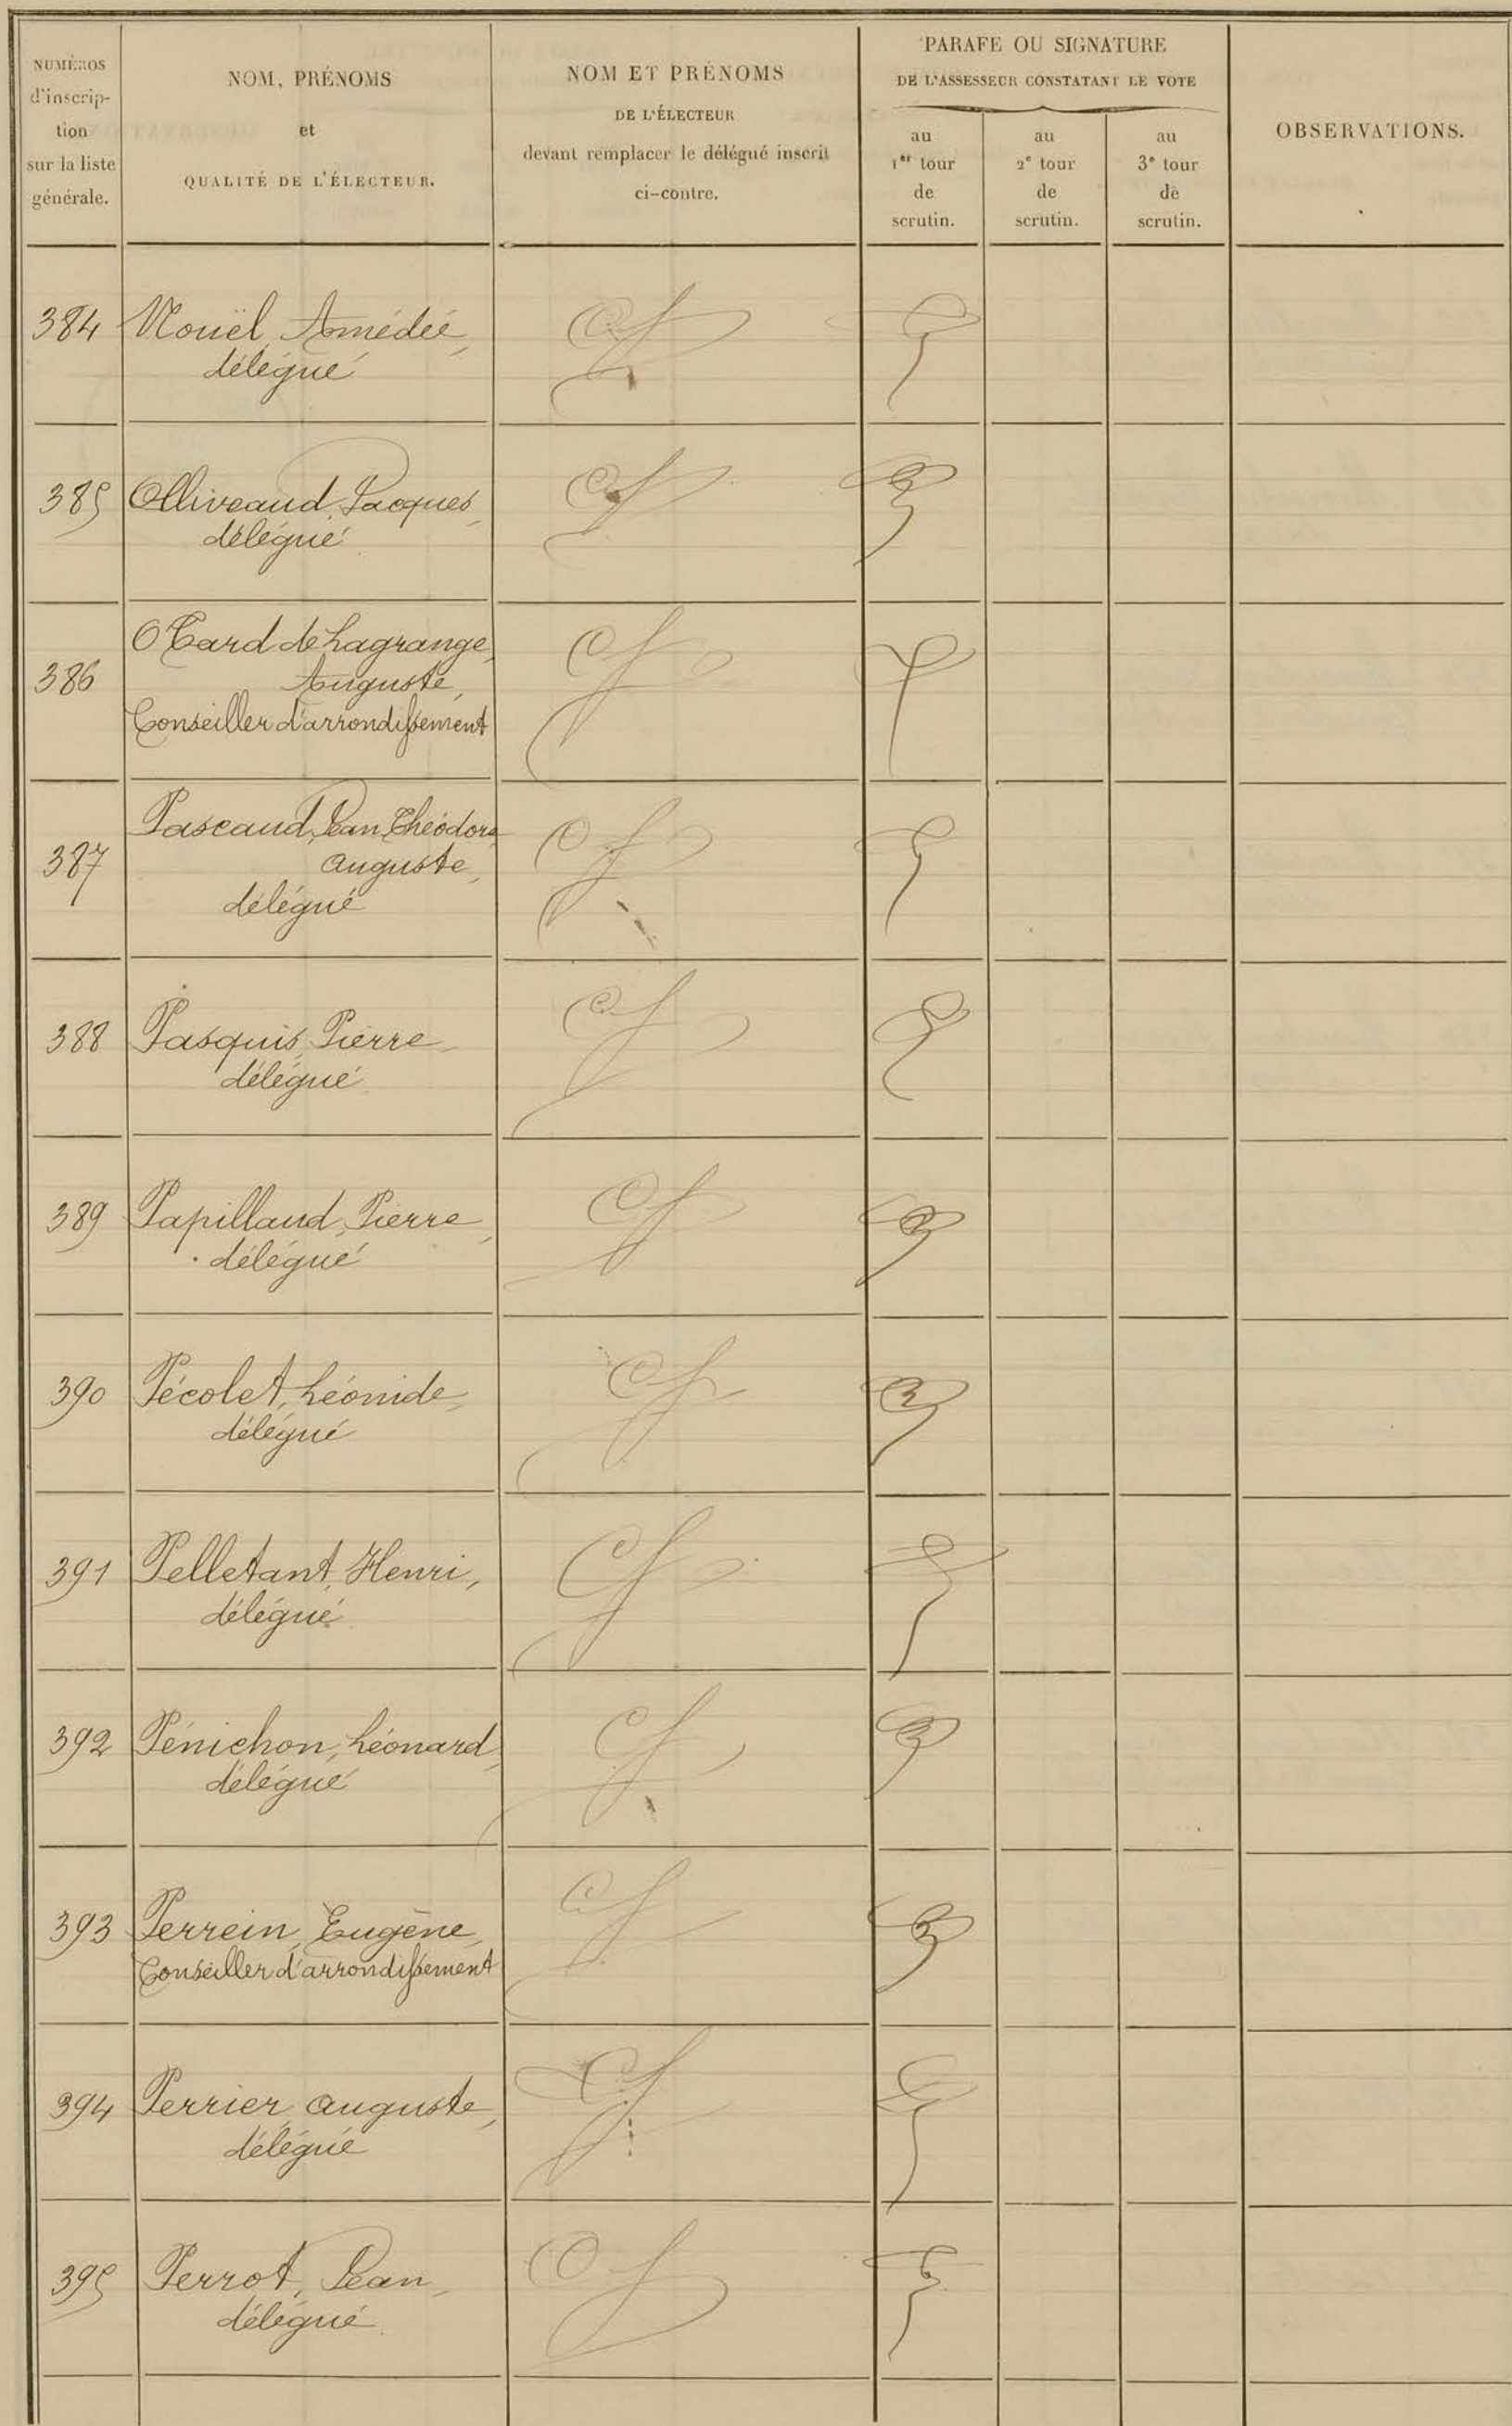 NUMÉROS
d'inscrip-
tion
sur la liste
générale.
NOM, PRÉNOMS
et
QUALITÉ DE L'ÉLECTEUR.
NOM ET PRÉNOMS
DE L'ÉLECTEUR
devant remplacer le délégué inscrit
ci-contre.
PARAFE OU SIGNATURE
DE L'ASSESSEUR CONSTATANT LE VOTE
au
1er tour
de
scrutin.
au
2e tour
de
scrutin.
au
3e tour
de
scrutin.
OBSERVATIONS.
384 Nouël, Amédée,
délégué
385 Olliveaud, Jacques,
délégué
O'Tard de Lagrange,
386 Auguste,
Conseiller d'arrondissement
Pascaud, Jean, Théodore,
387 auguste,
délégué
388 Pasquis, Pierre
délégué
389 Papillaud, Pierre,
délégué
390 Pécolet, Léonide,
délégué
391 Pelletant, Henri,
délégué
392 Pénichon, Léonard,
délégué
393 Perrein, Eugène,
Conseiller d'arrondissement
394 Perrier, auguste,
délégué
395 Perrot, Jean,
délégué